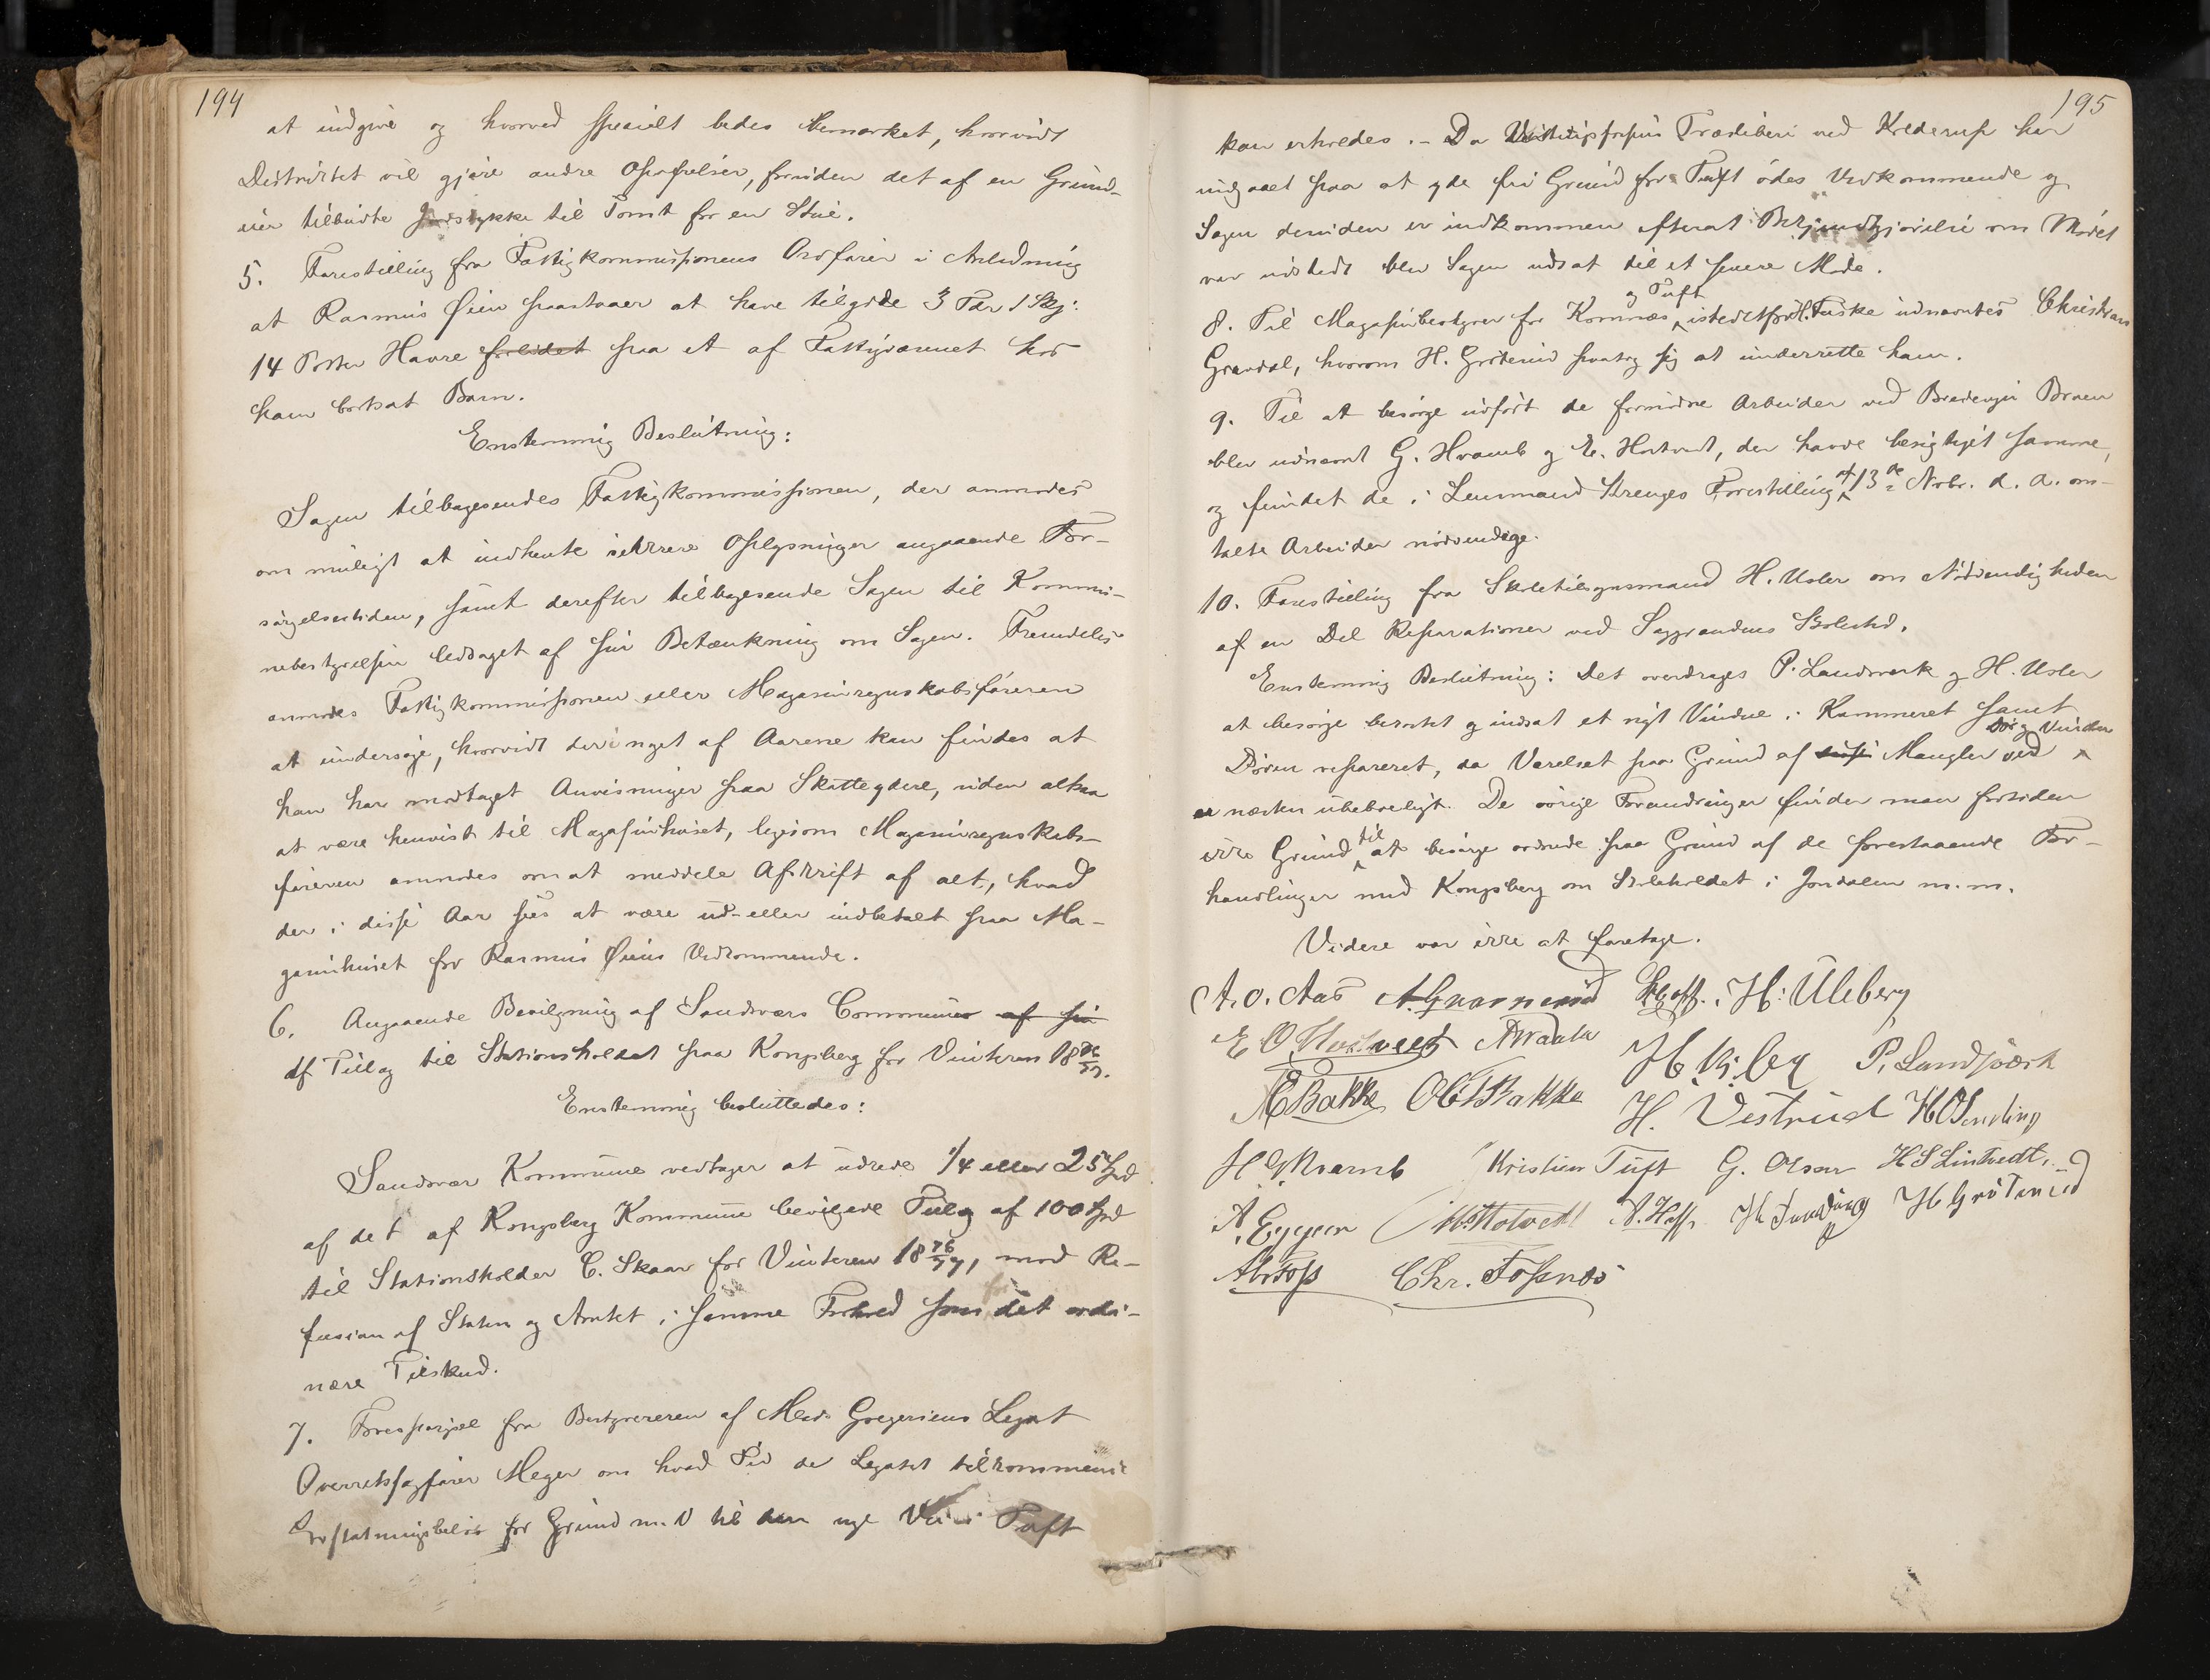 194
at indgive og hvorved specielt bedes bemærket, hvorvidt
Distriktet vil gjøre andre Opofrelser, foruden det af en Grund-
eier tilbudte Jordstykke til Tomt for en Stue.
5. Forestilling fra Fattigkommissionens Ordfører i Anledning
at Rasmus Øien paastaaer at have tilgode 3 Tdr 1 Skj:
14 Potter Havre forlidet paa et af Fattigvæsenet hos
ham bortsat Barn.
Enstemmig Beslutning:
Sagen tilbagesendes Fattigkommissionen, der anmodes
om muligt at indhente sikkrere Oplysninger angaaende For-
sørgelsestiden, samt derefter tilbagesende Sagen til Kommu-
nebestyrelsen ledsaget af sin Betænkning om Sagen. Fremdeles
anmodes Fattigkommissionen eller Magasinregnskabsføreren
at undersøge, hvorvidt der i noget af Aarene kan findes at
han har modtaget Anvisninger paa Skatteydere, uden altsaa
at være henvist til Magasinhuset, ligesom Magasinregnskabs-
føreren anmodes om at meddele Afskrift af alt, hvad
der i disse Aar sees at være ud- eller indbetalt paa Ma-
gasinhuset for Rasmus Øiens Vedkommende.
6. Angaaende Bevilgning af Sandsværs Commune af sin
df Tillæg til Stationsholdet paa Kongsberg for Vinteren 1876/77.
Enstemmig besluttedes:
Sandsvær Kommune vedtager at udrede 1/4 eller 25 Spd
af det af Kongsberg Kommune bevilgede Tillæg af 100 Spd
til Stationsholder C. Skaar for Vinteren 1876/77, mod Re-
fusion af Staten og Amtet i samme Forhold som det ordi-
nære Tilskud.
7. Forespørgsel fra Bestyreren af Mads Gregersens Legat
Overretssagfører Meyer om hvad Tid de Legatet tilkommende
Erstatningsbeløb for Grund m. V til den nye Vei i Tuft
195
kan erholdes. - Da Træsliberi ved Kolderup har
indgaaet paa at yde fri Grund for Tuft ødes Vedkommende og
Sagen desuden er indkommen efterat Bekjendtgjørelse om Mødet
var udstedt blev Sagen udsat til et senere Møde.
8. Til Magasinbestyrer for Komnæs og Tuft istedetfor H. Fuske udnævntes Christian
Gravdal, hvorom H. Grøterud paatog sig at underrette ham.
9. Til at besørge udført de fornødne Arbeider ved Bredengen Broen
blev udnævnt G. Hvamb og E. Hostvedt, der havde besigtiget samme,
og fundet de i Lensmand Strenges Forestilling af 13de Novbr. d. A. om-
talte Arbeider nødvendige.
10. Forestilling fra Skoletilsynsmand H. Ulser om Nødvendigheden
af en Del Reparationer ved Saggrendens Skolested.
Enstemmig Beslutning: Det overdrages P. Landsverk og H. Ulser
at besørge besørget og indsat et nyt Vindue i Kammeret samt
Døren repareret, da Værelset paa Grund af disse Mangler ved Dør og Vinduer
er næsten ubeboeligt. De øvrige Forandringer finder man fortiden
ikke Grund til at besørge ordnede paa Grund af de forestaaende For-
handlinger med Kongsberg om Skoleholdet i Jondalen m. m.
Videre var ikke at foretage.
A. O. Aas H: Uleberg
E O Hostvedt P. Landsværk
A E Bakke O C Bakke H. Vestrud
H G Hvamb Kristian Tuft G. Olsen H S Lintvedt
A. Eggen A. Hoff H Grøterud
Chr. Fossnæs